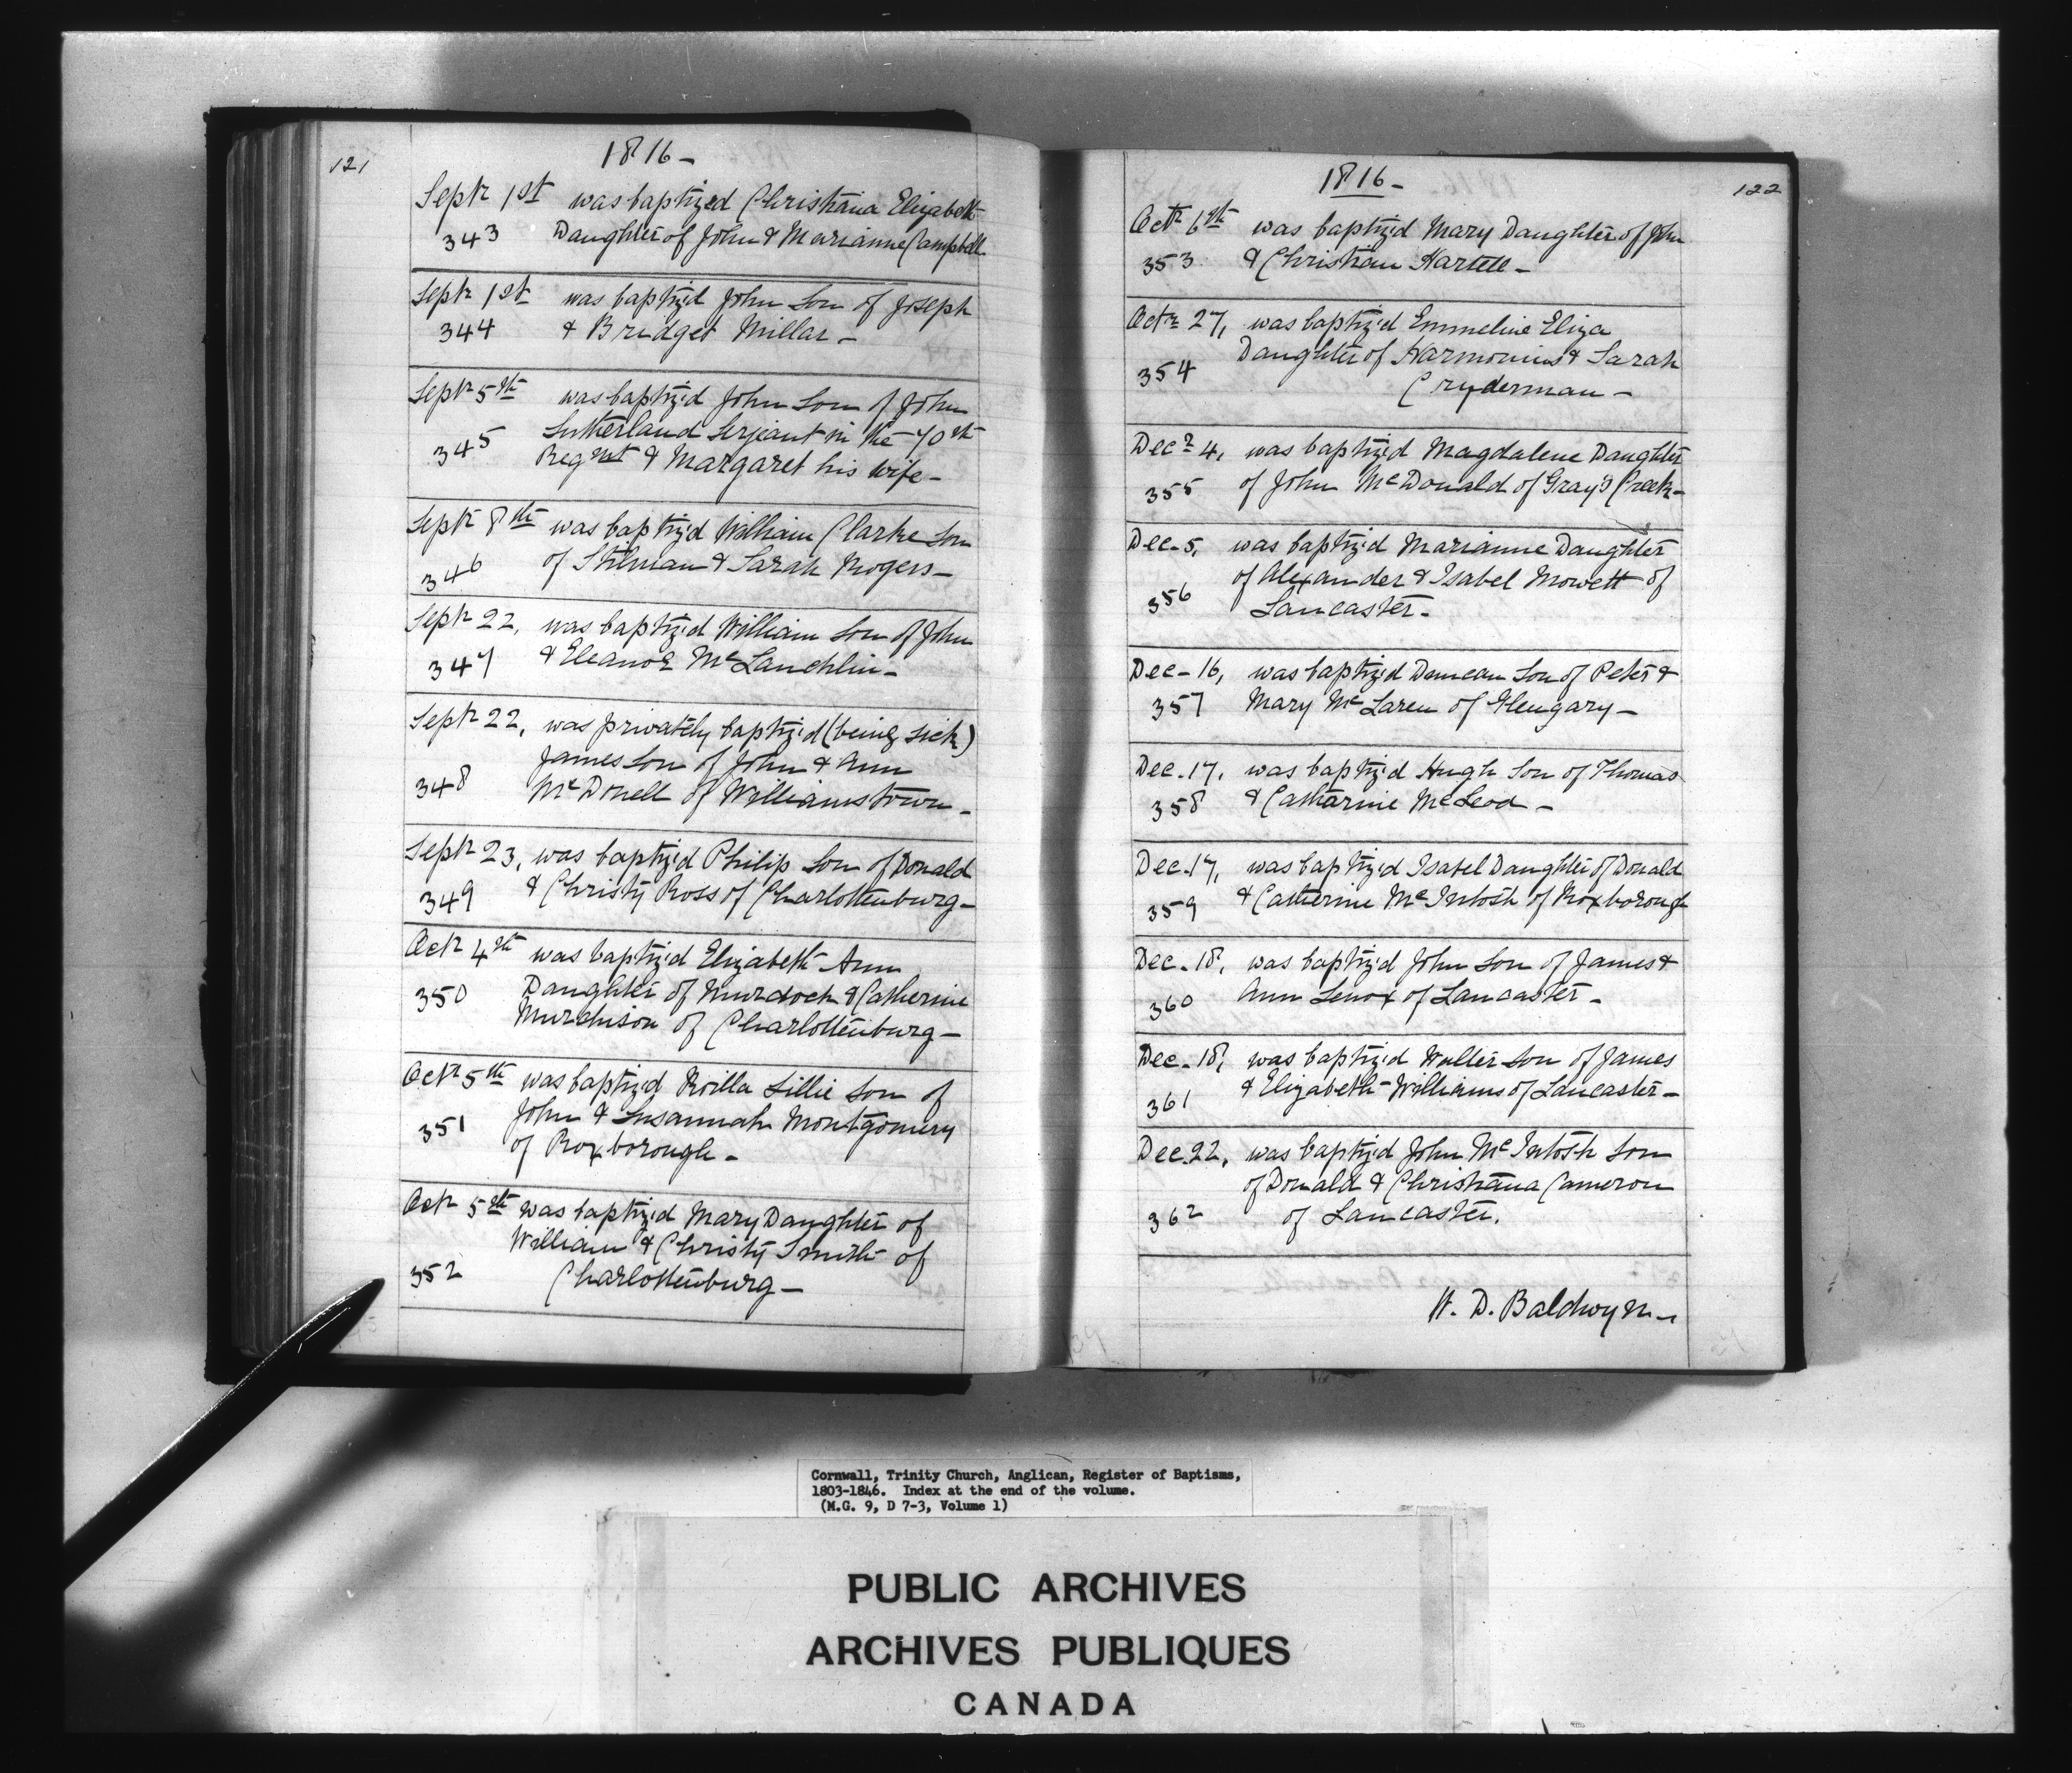 121
1816-
Septr 1st was baptized Christiana Elizabeth
343 Daughter of John & Marianne Campbell
Septr 1st was baptiz'd John Son of Joseph
344 & Bridget Millar -
Septr 5th was baptiz'd John Son of John
345 Sutherland Serjeant in the 70th
Regmt & Margaret his wife -
Septr 8th was baptiz'd William Clarke Son
346 of Stilman & Sarah Rogers -
Septr 22, was baptiz'd William Son of John
347 & Eleanor McLauchlin -
Septr 22, was privately baptiz'd (being sick)
James Son of John & Ann
348 McDonell of Williamstown -
Septr 23, was baptiz'd Philip Son of Donald
349 & Christy Ross of Charlottenburg -
Octr 4th was baptiz'd Elizabeth Ann
350 Daughter of Murdoch & Catherine
Murchison of Charlottenburg -
Octr 5th was baptiz'd Roilla Lillie Son of
351 John & Susannah Montgomery
of Roxborough -
Octr 5th was baptiz'd Mary Daughter of
William & Christy Smith of
352 Charlottenburg -
1816-
122
Octr 6th was baptiz'd Mary Daughter of John
353 & Christian Hartle -
Octr 27, was baptiz'd Emmeline Eliza
354 Daughter of Harmonius & Sarah
Cryderman -
Decr 4, was baptiz'd Magdalene Daughter
355 of John McDonald of Gray's Creek -
Dec. 5, was baptiz'd Marianne Daughter
356 of Alexander & Isabel Mowett of
Lancaster -
Dec - 16, was baptiz'd Duncan Son of Peter &
357 Mary McLaren of Glengary -
Dec. 17, was baptiz'd Hugh Son of Thomas
358 & Catharine McLeod -
Dec. 17, was baptiz'd Isabel Daughter of Donald
359 & Catherine McIntosh of Roxborough
Dec. 18, was baptiz'd John Son of James &
360 Ann Lenox of Lancaster -
Dec. 18, was baptiz'd Walter Son of James
361 & Elizabeth Williams of Lancaster -
Dec. 22, was baptiz'd John McIntosh Son
of Donald & Christiana Cameron
362 of Lancaster.
W. D. Baldwyn -
Cornwall, Trinity Church, Anglican, Register of Baptisms,
1803-1846. Index at the end of the volume.
(M.G. 9, D 7-3, Volume 1)
PUBLIC ARCHIVES
ARCHIVES PUBLIQUES
CANADA